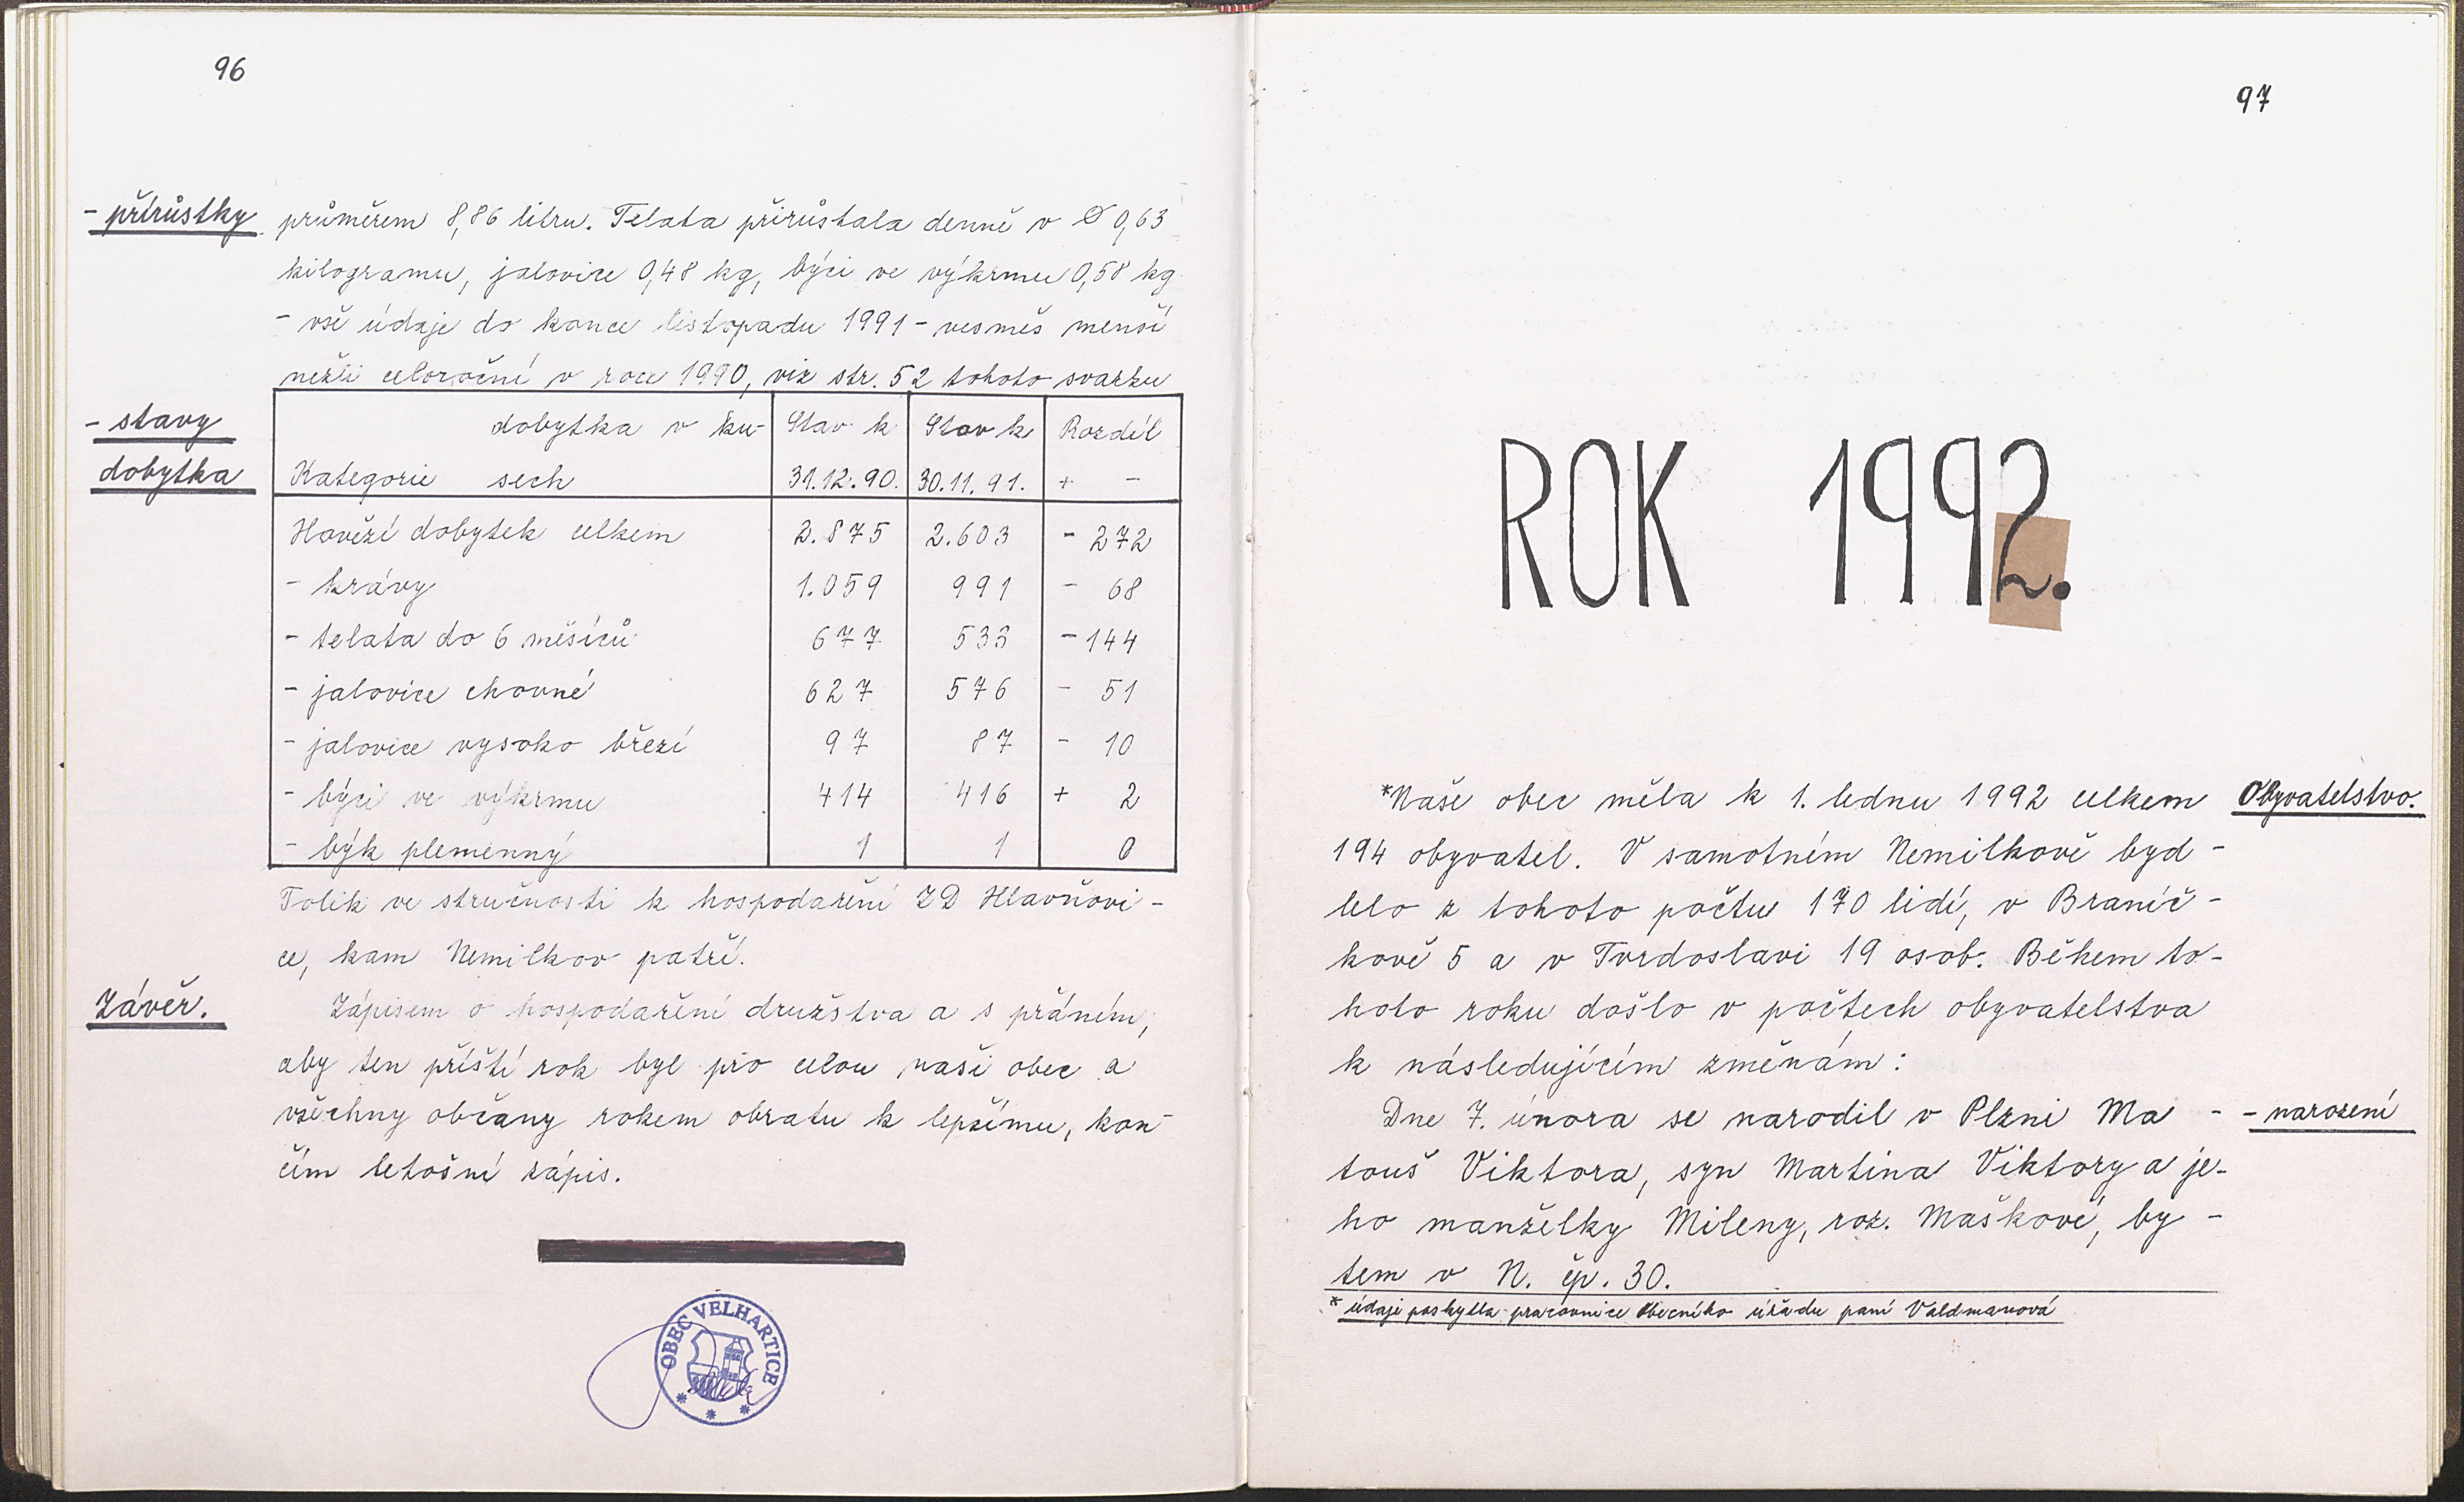 96
- přírůstky průměrem 8,86 litru. Telata přirůstala denně v Ø 0,63
kilogramu, jalovice 0,48 kg, býci ve výkrmu 0,58 kg
- vše údaje do konce listopadu 1991 - vesměs menší
nežli celoroční v roce 1990, viz str. 52 tohoto svazku
- stavy
dobytka
dobytka v ku- Stav k Stav k Rozdíl
Kategorie sech 31.12.90. 30.11.91. + -
Hovězí dobytek celkem 2.875 2.603 - 272
- krávy 1.059 991 - 68
- telata do 6 měsíců 677 533 - 144
- jalovice chovné 627 576 - 51
- jalovice vysoko březí 97 87 - 10
- býci ve výkrmu 414 416 + 2
- býk plemenný 1 1 0
Tolik ve stručnosti k hospodaření ZD Hlavňovi-
ce, kam Nemilkov patří.
Závěr. Zápisem o hospodaření družstva a s přáním,
aby ten příští rok byl pro celou naši obec a
všechny občany rokem obratu k lepšímu, kon-
čím letošní zápis.
OBEC VELHARTICE
97
ROK 1992.
*Naše obec měla k 1. lednu 1992 celkem Obyvatelstvo.
194 obyvatel. V samotném Nemilkově byd-
lelo z tohoto počtu 170 lidí, v Braníč-
kově 5 a v Tvrdoslavi 19 osob. Během to-
hoto roku došlo v počtech obyvatelstva
k následujícím změnám:
Dne 7. února se narodil v Plzni Ma - - narození
touš Viktora, syn Martina Viktory a je-
ho manželky Mileny, roz. Maškové, by -
tem v N. čp. 30.
* údaje poskytla pracovnice Obecního úřadu paní Valdmanová